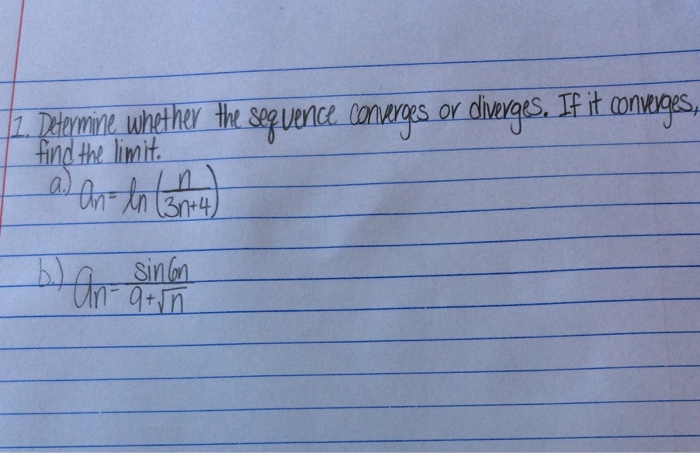 1. Determine whether the sequence converges or diverges. If it converges,
find the limit.
a.) an = ln (n/3n+4)
b.) an = sin6n/9+√n